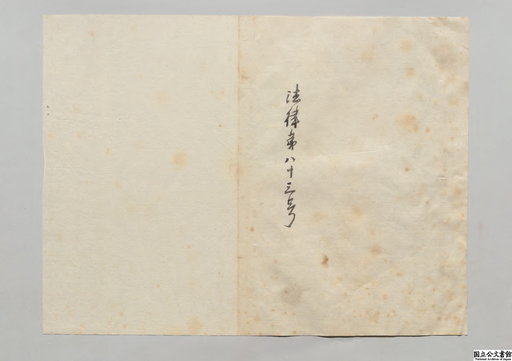 法律第八十三号
国立公文書館
National Archives of Japan